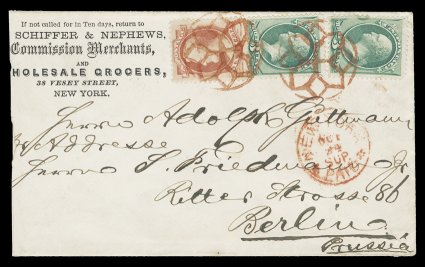 If not called for in Ten days, return to
SCHIFFER & NEPHEWS,
Commission Merchants,
AND
HOLESALE GROCERS,
38 VESEY STREET,
NEW YORK.
Herrn Adolph Guttmann
Addresse
Herrn S. Friedmann Jr
Ritter Strasse 86
Berlin
Prussia
NEW
OCT
SUP